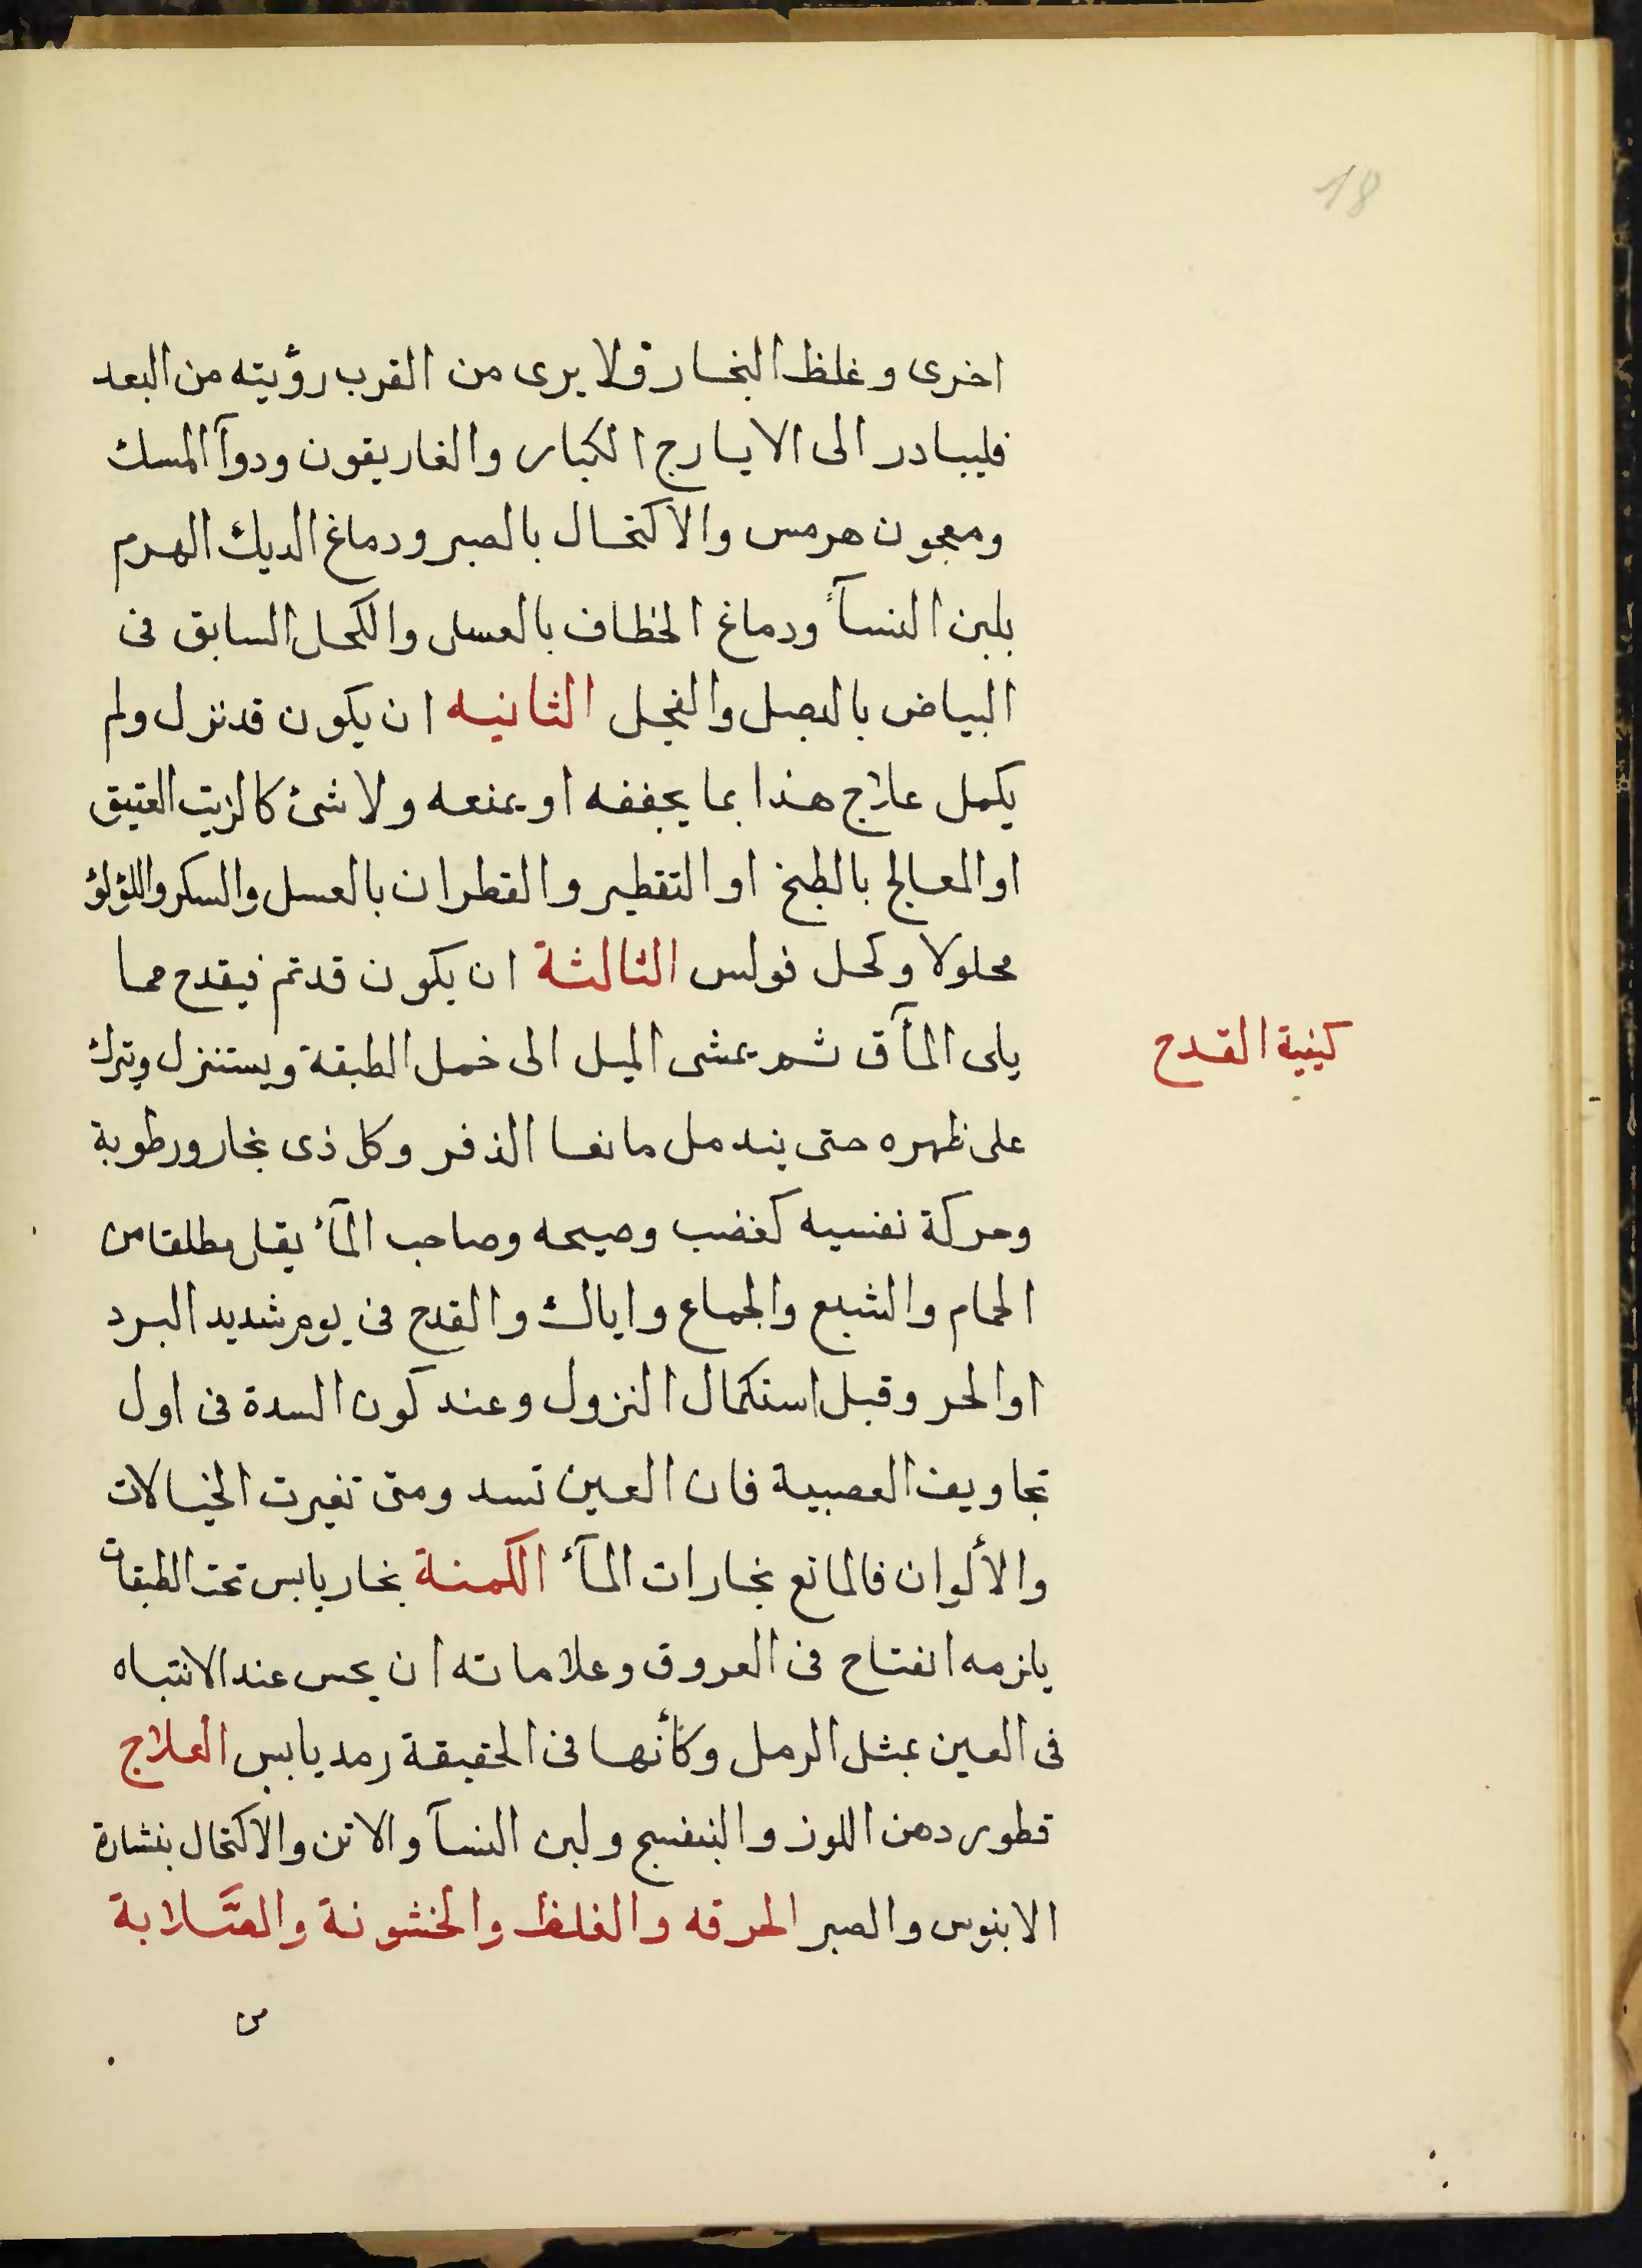 18
اخرى وغلظ البخار ولا يرى من القرب رؤيته من البعد
فليبادر الى الايارج الكبار والغاريقون ودوآ المسك
ومعجون هرمس والاكتحال بالصبر ودماغ الديك الهرم
بلبن النسآء ودماغ الخطاف بالعسل والكحل السابق فى
البياض بالبصل والفجل الثانيه ان يكون قد نزل ولم
يكمل علاج هذا بما يجففه او يمنعه ولا شئ كالزيت العتيق
او المعالج بالطبخ او التقطير والقطران بالعسل والسكر واللؤلؤ
محلولا وكحل فولس الثالثة ان يكون قد تم فيقدح مما
كيفية القدح
يلى المآق ثم يمشى الميل الى خمل الطبقة ويستنزل ويترك
على ظهره حتى يندمل مانعا الذفر وكل ذى بخار ورطوبة
وحركة نفسيه كغضب وصيحه وصاحب المآء يقلل مطلقا من
الحمام والشبع والجماع واياك والقدح فى يوم شديد البرد
او الحر وقبل استكمال النزول وعند كون السدة فى اول
تجاويف العصبية فان العين تسد ومتى تغيرت الخيالات
والألوان فالمانع بخارات المآء الكمنة بخار يابس تحت الطبقات
يلزمه انفتاح فى العروق وعلاماته ان يحس عند الانتباه
فى العين بمثل الرمل وكأنها فى الحقيقة رمد يابس العلاج
قطور دهن اللوز والبنفسج ولبن النسآ والاتن والاكتحال بنشارة
الابنوس والصبر الحرقه والغلظ والخشونة والصَّلابة
من